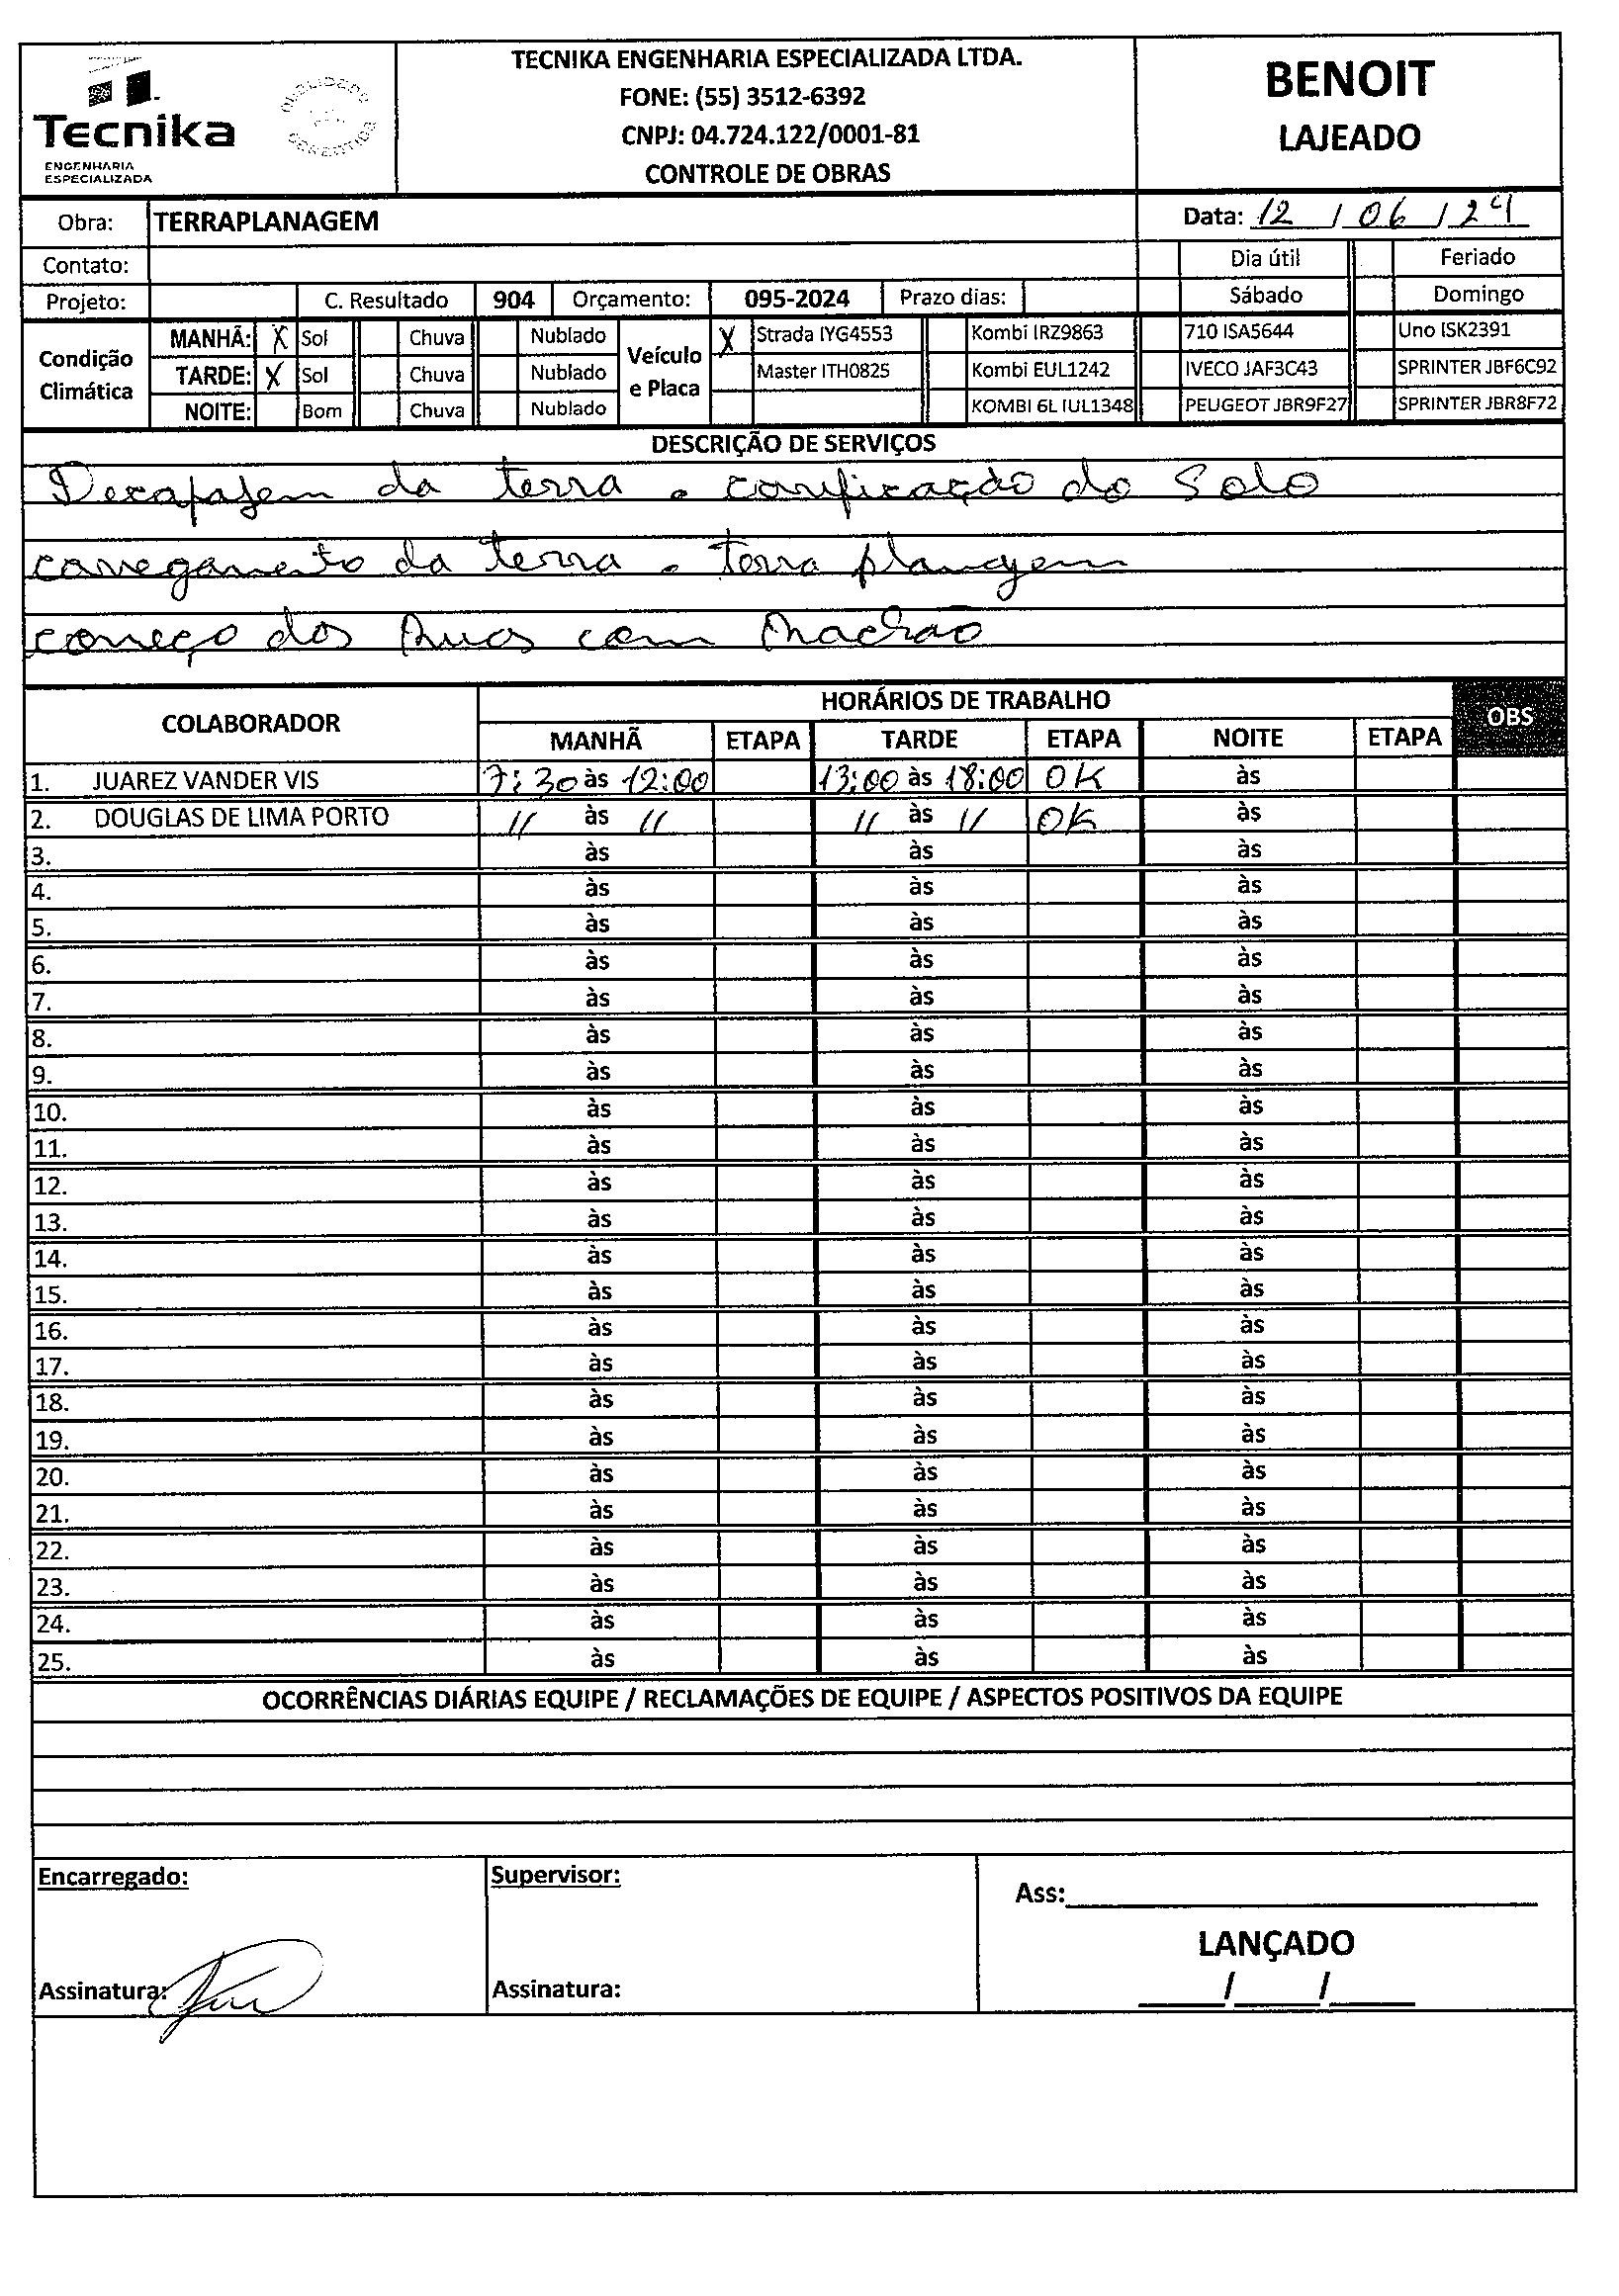 Tecnika
ENGENHARIA
ESPECIALIZADA
TECNIKA ENGENHARIA ESPECIALIZADA LTDA.
FONE: (55) 3512-6392
CNPJ: 04.724.122/0001-81
CONTROLE DE OBRAS
BENOIT
LAJEADO
Obra: TERRAPLANAGEM Data: 12 / 06 / 24
Contato: Dia útil Feriado
Projeto: C. Resultado 904 Orçamento: 095-2024 Prazo dias: Sábado Domingo
Condição Climática
MANHÃ: X Sol Chuva Nublado
TARDE: X Sol Chuva Nublado
NOITE: Bom Chuva Nublado
Veículo e Placa
X Strada IYG4553 Kombi IRZ9863 710 ISA5644 Uno ISK2391
Master ITH0825 Kombi EUL1242 IVECO JAF3C43 SPRINTER JBF6C92
KOMBI 6L IUL1348 PEUGEOT JBR9F27 SPRINTER JBR8F72
DESCRIÇÃO DE SERVIÇOS
Decapajem da terra . do solo
carregamento da terra . terra planagem
começo dos com rachão
COLABORADOR HORÁRIOS DE TRABALHO OBS
MANHÃ ETAPA TARDE ETAPA NOITE ETAPA
1. JUAREZ VANDER VIS 7:30 às 12:00 13:00 às 18:00 OK às
2. DOUGLAS DE LIMA PORTO // às // // às // OK às
3. às às às
4. às às às
5. às às às
6. às às às
7. às às às
8. às às às
9. às às às
10. às às às
11. às às às
12. às às às
13. às às às
14. às às às
15. às às às
16. às às às
17. às às às
18. às às às
19. às às às
20. às às às
21. às às às
22. às às às
23. às às às
24. às às às
25. às às às
OCORRÊNCIAS DIÁRIAS EQUIPE / RECLAMAÇÕES DE EQUIPE / ASPECTOS POSITIVOS DA EQUIPE
Encarregado: Supervisor: Ass:
LANÇADO
Assinatura: Assinatura: / /